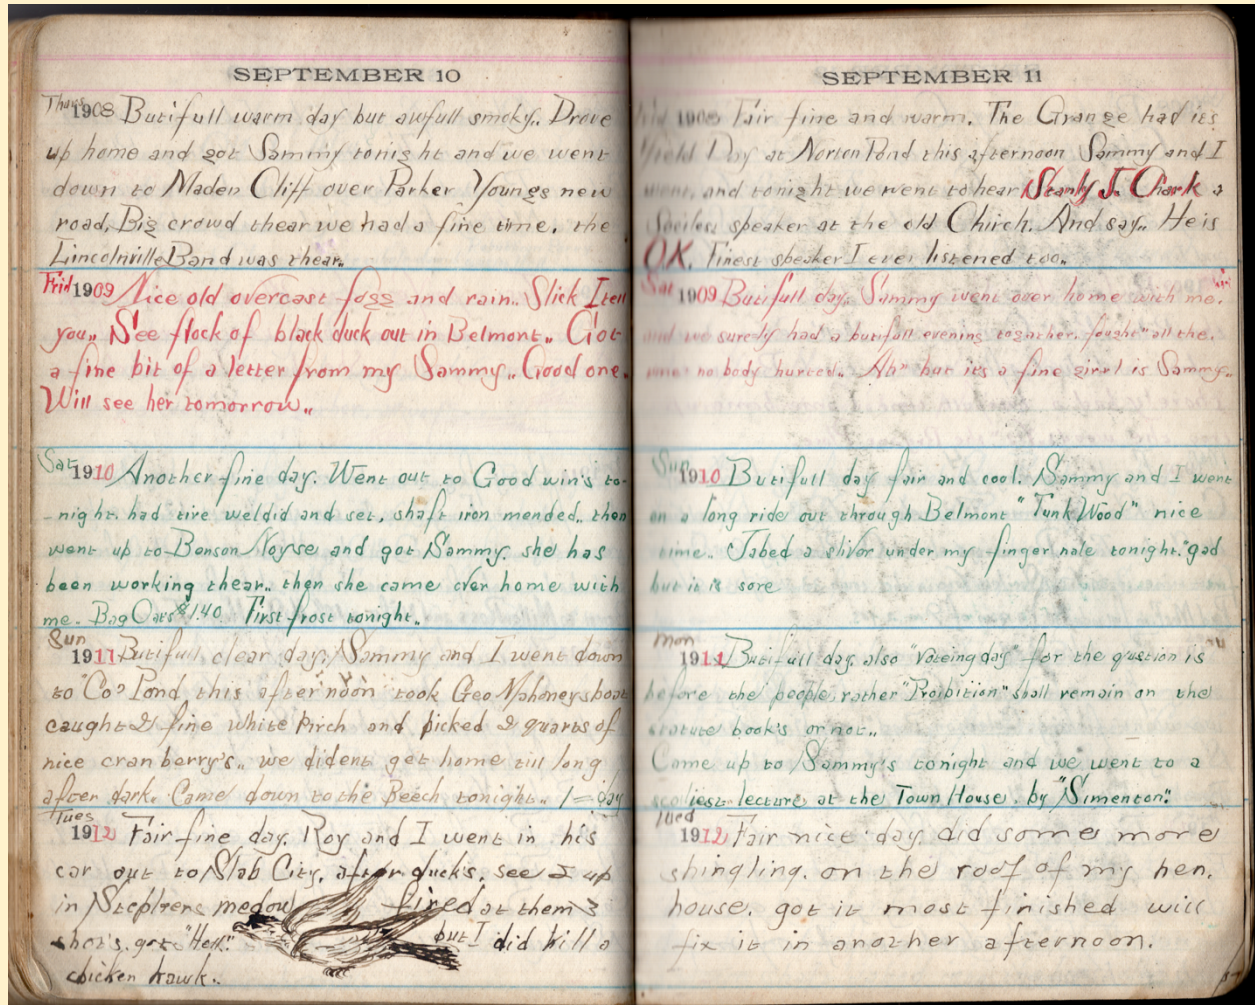 SEPTEMBER 10
Thurs 1908 Butifull warm day but awfull smoky.. Drove
up home and got Sammy tonight and we went
down to Maden Cliff over Parker Youngs new
road, Big crowd thear we had a fine time. the
Lincolnville Band was thear..
Frid 1909 Nice old overcast fogg and rain.. Slick I tell
you.. See flock of black duck out in Belmont.. Got
a fine bit of a letter from my Sammy.. Good one.
Will see her tomorrow..
Sat 1910 Another fine day. Went out to Good win's to-
-night. had tire weldid and set, shaft iron mended.. then
went up to Benson Noyse and got Sammy. she has
been working thear.. then she came over home with
me. Bag Oats $1.40 First frost tonight..
Sun 1911 Butifull clear day. Sammy and I went down
to "Co" Pond this after noon took Geo Mahoneys boat
caught 2 fine white Pirch and picked 2 quarts of
nice cran berry's.. we dident get home till long
after dark. Came down to the Beech tonight.. 1 = day
Tues 1912 Fair fine day. Roy and I went in his
car out to Slab City. after duck's. see 2 up
in Stephens medow fired at them 3
shot's. got "Hell" but I did kill a
chicken hawk..
SEPTEMBER 11
Frid 1908 Fair fine and warm. The Grange had its
Field Day at Norton Pond this afternoon Sammy and I
went, and tonight we went to hear Stanly J. Clark a
speaker at the old Chirch. And say.. He is
OK. Finest speaker I ever listened too..
Sat 1909 Butifull day. Sammy went over home with me.
and we surely had a butifull evening togather. fought "all the.
no body hurted.. Ah" but it's a fine girrl is Sammy..
Sun 1910 Butifull day fair and cool. Sammy and I went
on a long ride out through Belmont "Tunk Wood" nice
time.. Jabed a slivor under my finger nale tonight."gad
but it is sore
Mon 1911 Butifull day. also "Voteing day" for the qustion is
before the people, rather "Proibition" shall remain on the
statute book's or not..
Come up to Sammy's tonight and we went to a
lecture at the Town House. by "Simenton".
Wed 1912 Fair nice day. did some more
shingling. on the roof of my hen.
house. got it most finished will
fix it in another afternoon.